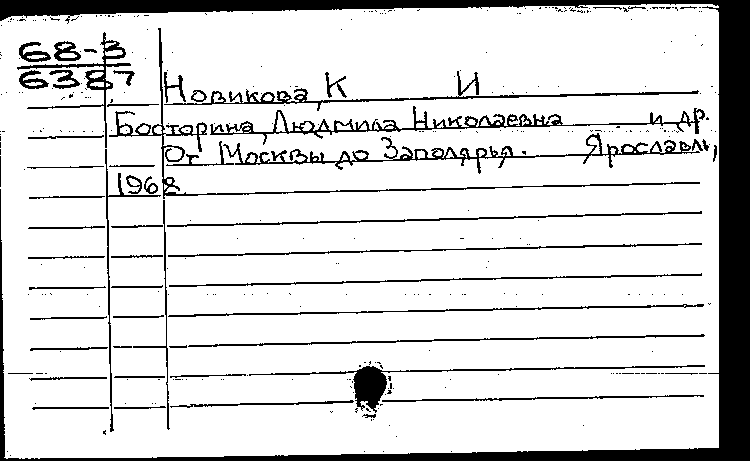 68-3
6387
Новикова, К И
Босторина, Людмила Николаевна и др.
От Москвы до Заполярья. Ярославль,
1968